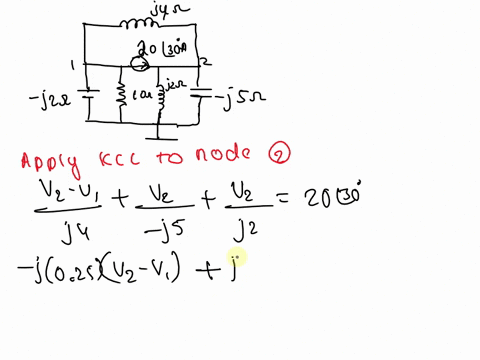 j4Ω
20∠30°A
1
2
-j2Ω
10Ω
j2Ω
-j5Ω
Apply KCC to node ②
(V2-V1)/j4 + V2/-j5 + V2/j2 = 20∠30°
-j(0.25)(V2-V1) + j